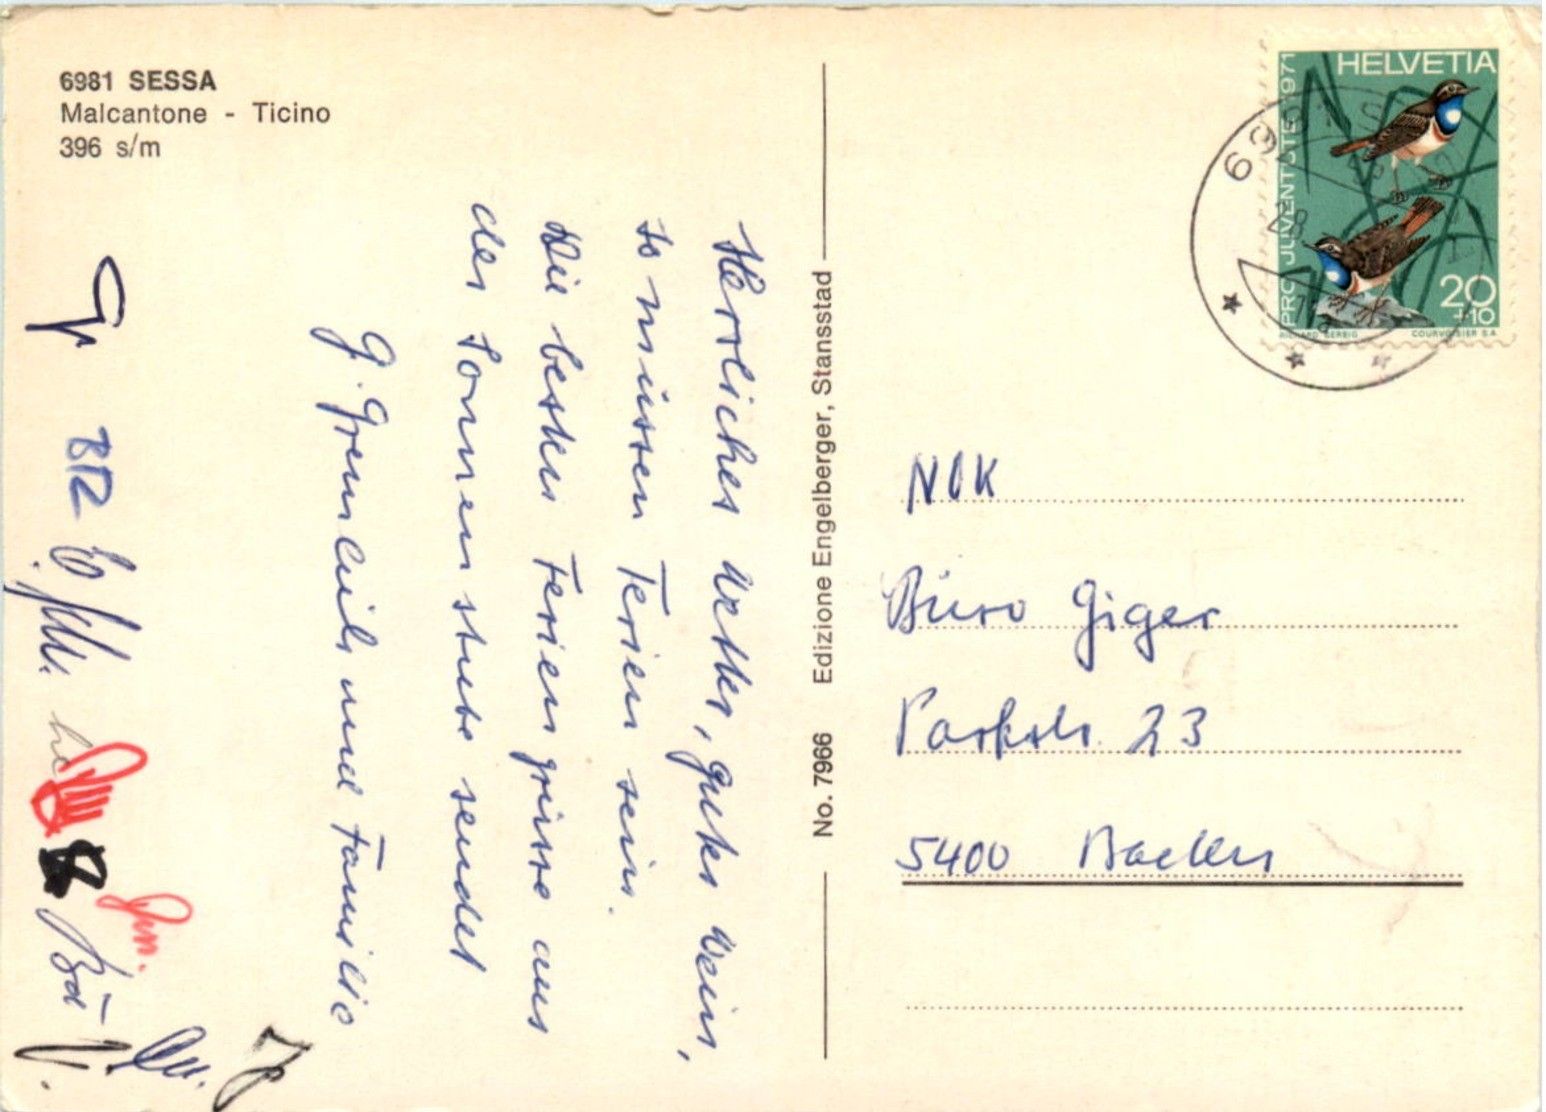 6981 SESSA
Malcantone - Ticino
396 s/m
Herrliches Wetter, gutes Wein,
so müssen Ferien sein.
Die besten Feriengrüsse aus
der Sonnenstube sendet
und Familie
No. 7966 Edizione Engelberger, Stansstad
HELVETIA
PRO JUVENTUTE 1971
20
+10
COURVOISIER S.A.
NOK
Büro Giger
Parkstr. 23
5400 Baden